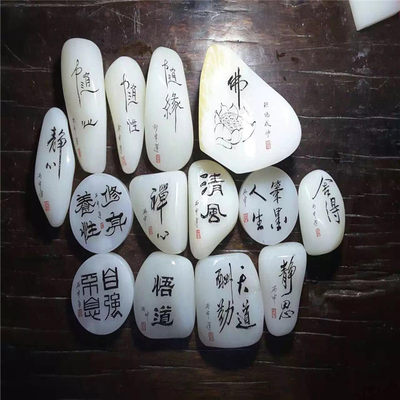 隨心
隨性
隨緣
佛
靜心
修身
養性
禪心
清風
筆墨
人生
舍得
自强
不息
悟道
天道
酬勤
靜思